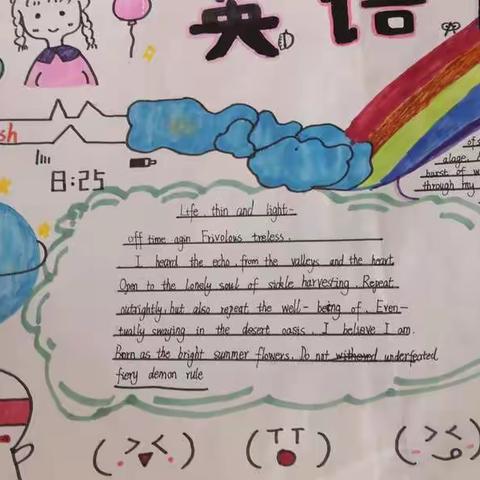 英语
sh
8:25
of s
alage. A
burst of w
through my
Life, thin and light-
off time again Frivolous treless.
I heard the echo, from the valleys and the heart
Open to the lonely soul of sickle harvesting. Repeat
outrightly, but also repeat the well-being of. Even-
tually swaying in the desert oasis. I believe I am.
Born as the bright summer flowers. Do not withered underfeated
fiery demon rule